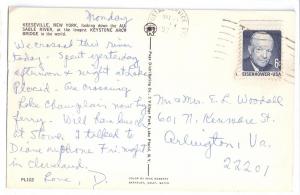 Monday
KEESEVILLE, NEW YORK, looking down the AU
SABLE RIVER, at the longest KEYSTONE ARCH
BRIDGE in the world.
We crossed this river
today. Spent yesterday
afternoon & night at Lake
Placid. Are crossing
Lake Champlain now by
ferry. Will
at Stowe. I talked to
Diane by phone Fri night
in Cleveland.
Love, D.
PL102
COLOR BY
6c
EISENHOWER·USA
Mr & Mrs. E.L. Woodall
601 N. Kenmore St.
Arlington, Va.
22201